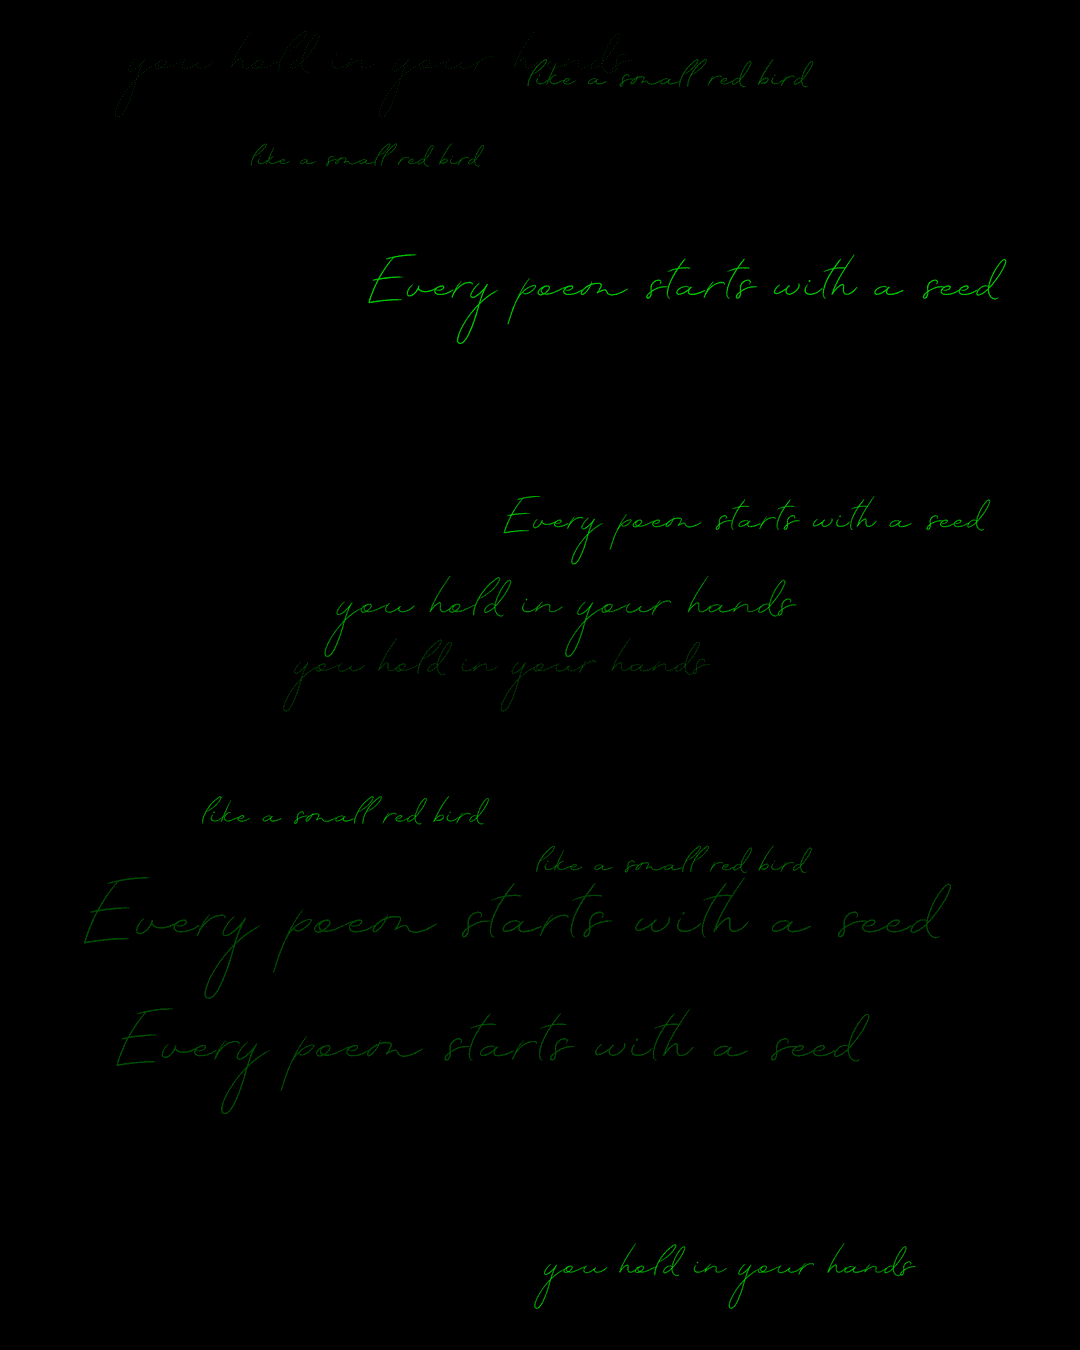 you hold in your hands
like a small red bird
like a small red bird
Every poem starts with a seed
Every poem starts with a seed
you hold in your hands
you hold in your hands
like a small red bird
like a small red bird
Every poem starts with a seed
Every poem starts with a seed
you hold in your hands